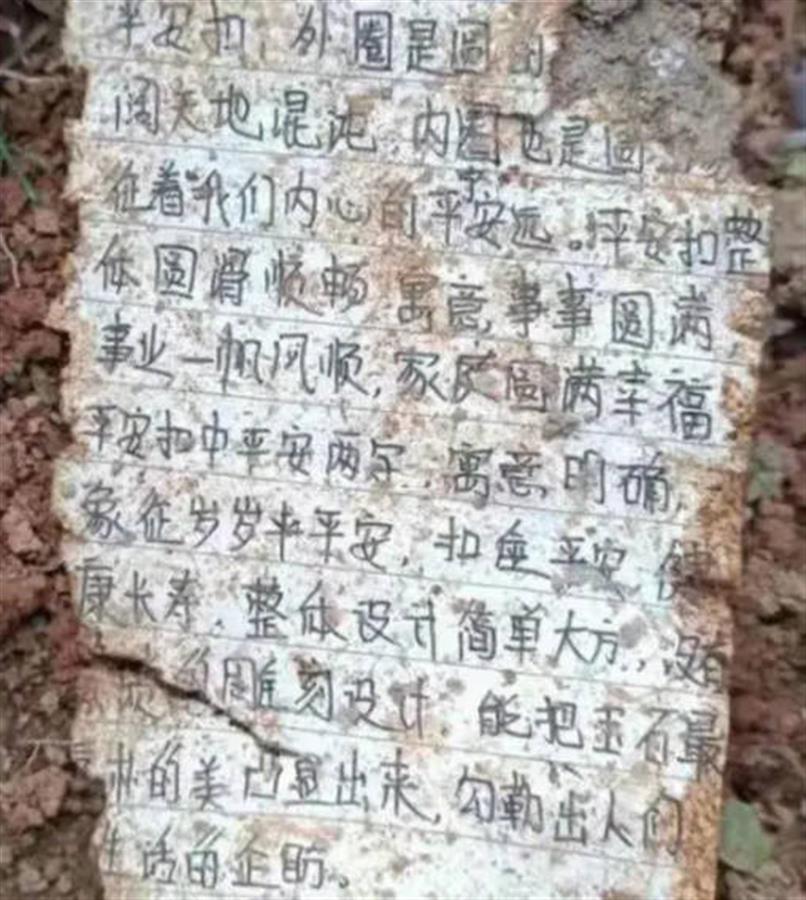 平安扣,外圈是圆
阔天地混沌,内圈也是圆
征着我们内心的平安宁远。平安扣整
体圆滑顺畅 寓意,事事圆满,
事业一帆风顺,家庭圆满幸福
平安扣中平安两字,寓意,明确,
象征岁岁平平安,扣住平安 健
康长寿,整体设计简单大方,没有
的雕刻设计 能把玉石最
的美凸显出来,勾勒出人们
生活的企盼。